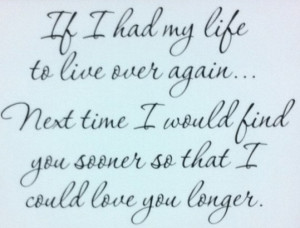 If I had my life
to live over again...
Next time I would find
you sooner so that I
could love you longer.